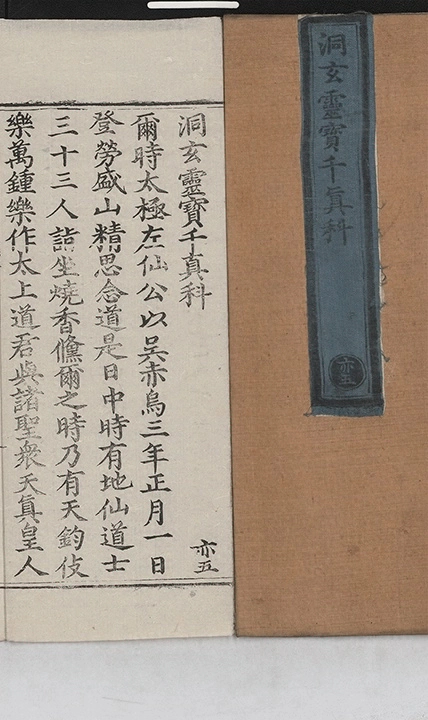 洞玄靈寶千真科
亦五
洞玄靈寶千真科
亦五
爾時太極左仙公以吳赤烏三年正月一日
登勞盛山精思念道是日中時有地仙道士
三十三人詣坐燒香儵爾之時乃有天鈞伎
樂萬鍾樂作太上道君與諸聖衆天真皇人